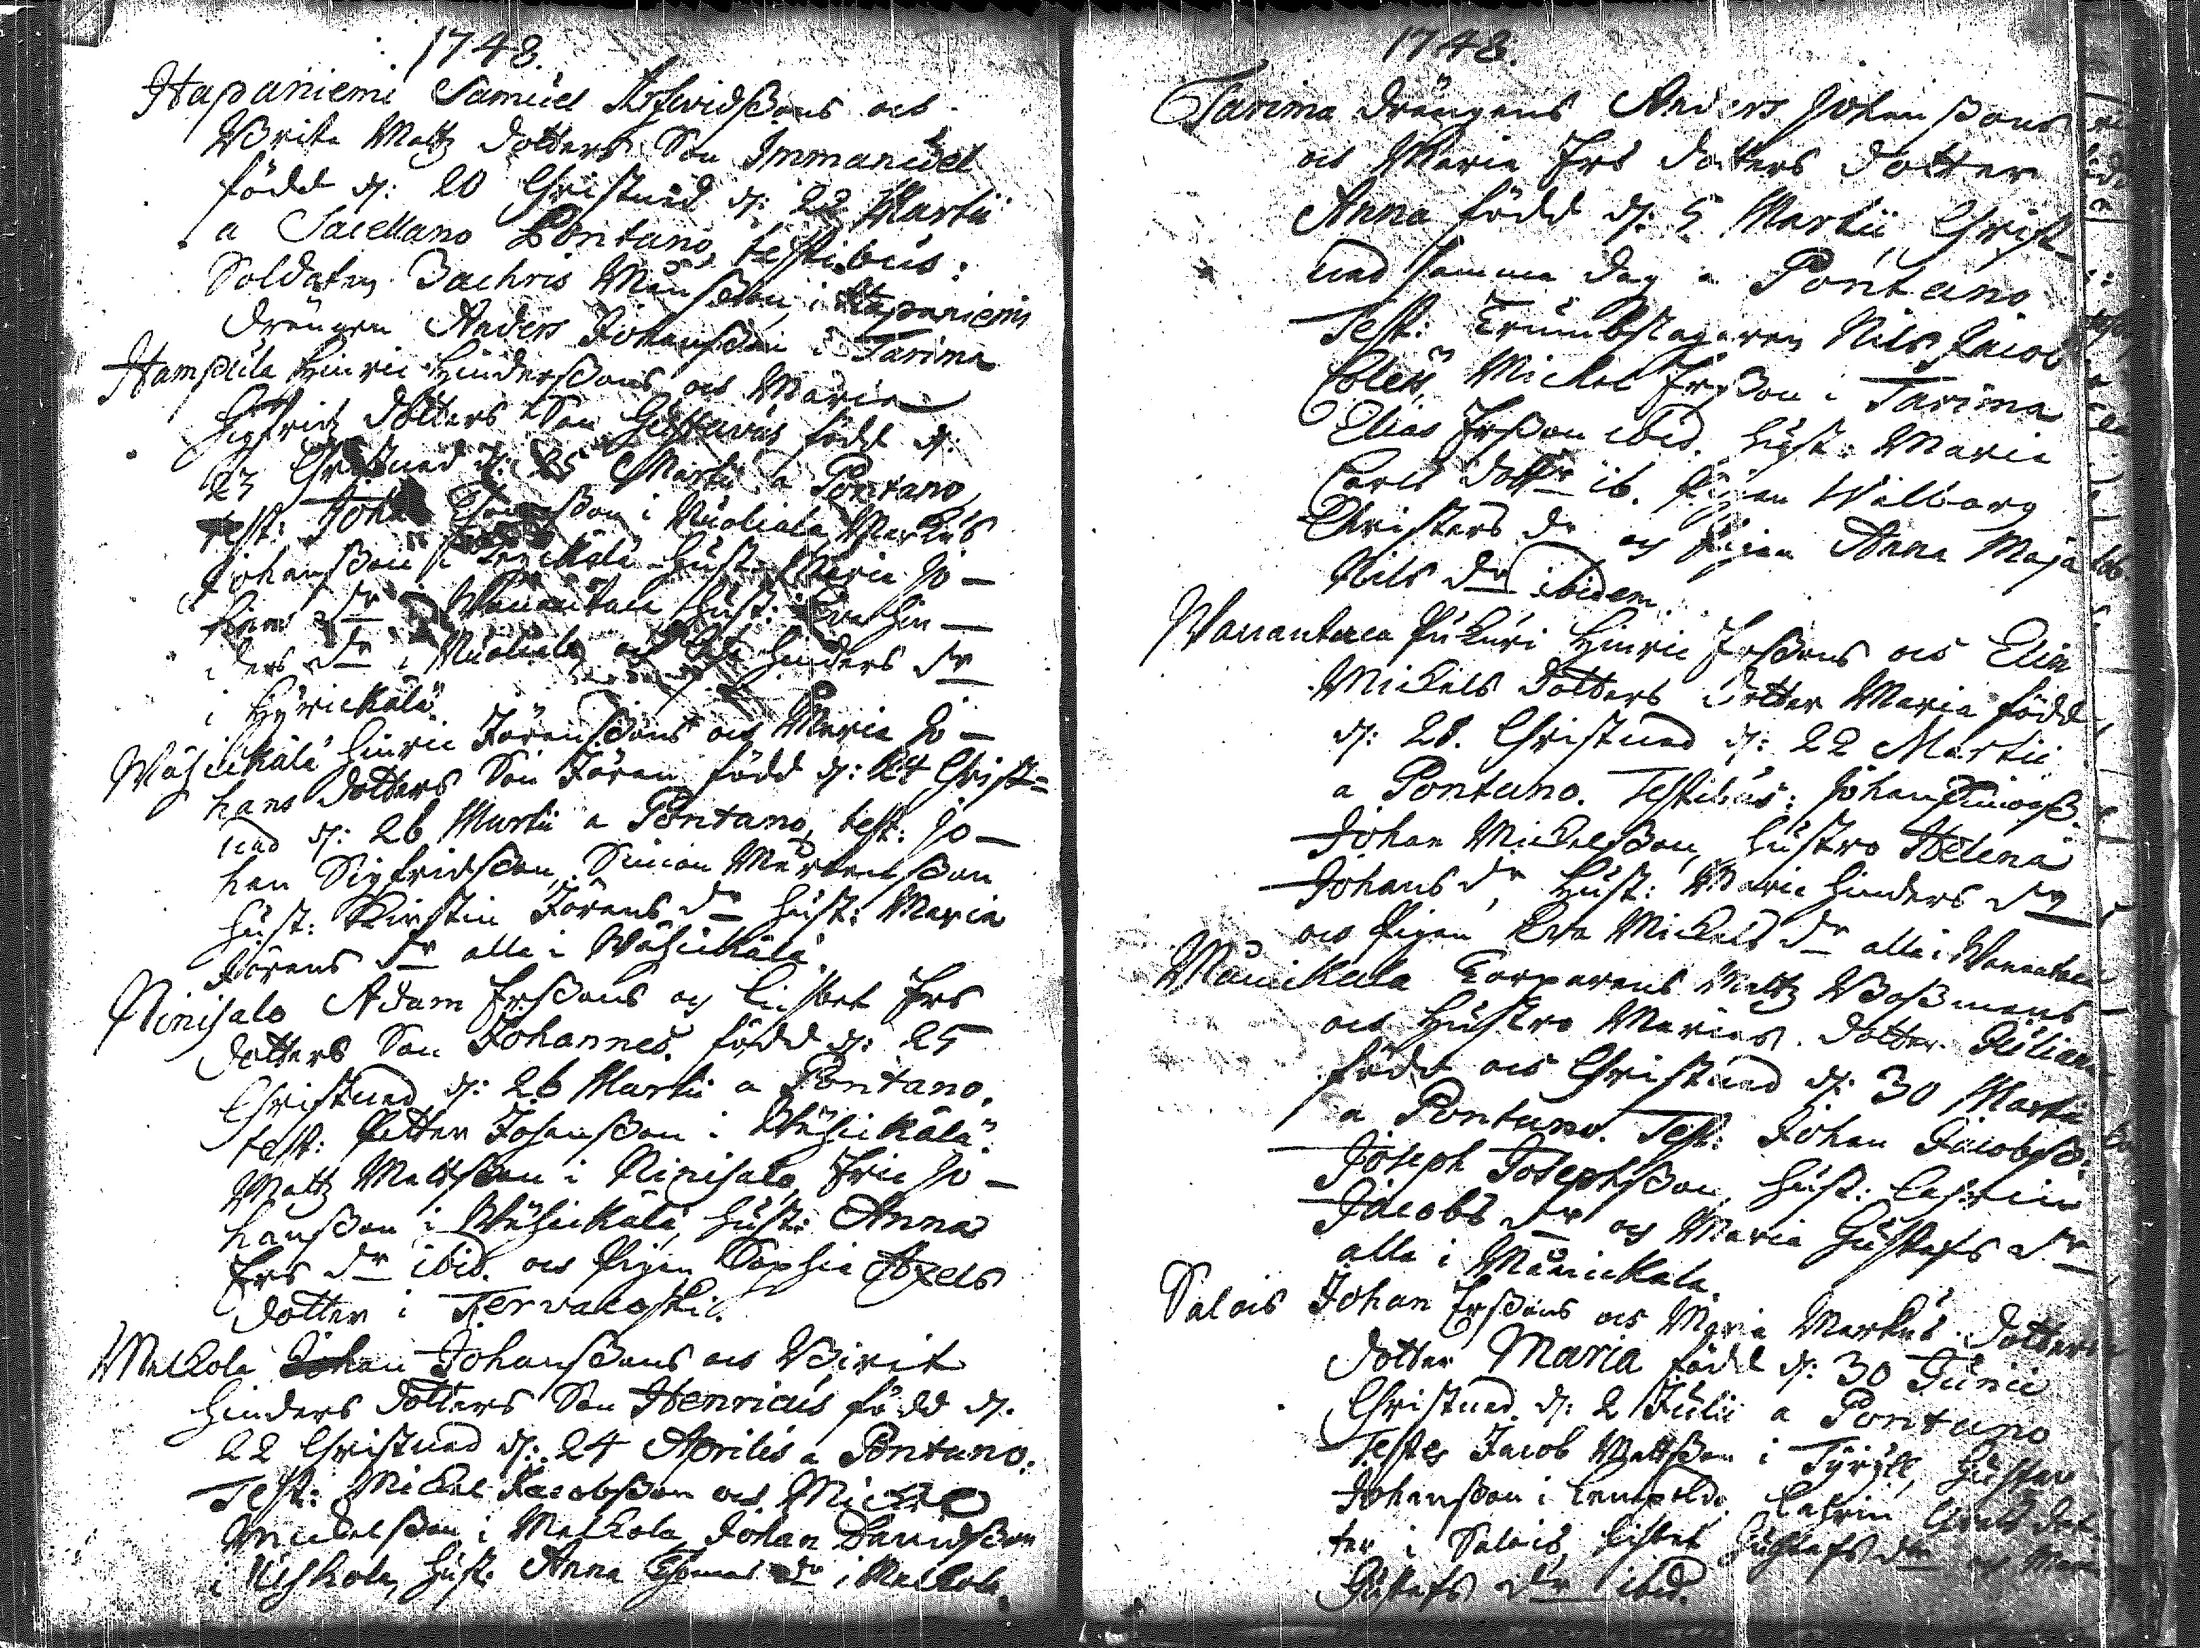 1748.
Hapaniemi Samuel Arfwidßons och
Brita Mattz dotters Son Immanuel
född d: 20 Christnad d: 22 Martii
a Sacellano Pontano, testibus:
Soldaten Zachris Månßon i Hapaniemi
drängen Anders Johanßon i Tarima
Hampula Hinric Hinderßons och Maria
Sigfridz dotters Son Gustavus född d:
23 Christnad d: 25 Martii a Pontano,
test: Johan ßon i Nuoliala Markus
Johanßon i hust: Maria Jo-
hans dr i Wanantaca hust: Hin-
ders dr i Nuoliala och Hinders dr
i Hyrickälä.
Wähickälä Hinric Jöranßons och Maria Jo-
hans dotters Son Jöran född d: 24 Christ=
nad d: 26 Martii a Pontano, test: Jo-
han Sigfridßon, Simon Mårtenßon
hust: Kirstin Jörans dr hust: Maria
Jörans dr alla i Wähickälä.
Ninisalo Adam Erßons och Lisbet Ers
dotters Son Johannes född d: 25
Christnad d: 26 Martii a Pontano.
test: Petter Johanßon i Wähickälä
Mattz Mattßon i Ninisalo, Eric Jo-
hanßon i Wähickälä, hust: Anna
Ers dr ibid. och Pigan Sophia Axels
dotter i Tervakoski.
Melkola Johan Johanßons och Birit
Hinders dotters Son Henricus född d.
22 Christnad d: 24 Aprilis a Pontano.
Test: Mickel Jacobßon och Mickel
Mickelßon i Melkola, Johan Davidßon
i Uskola, hust. Anna Thomas dr i Melkola.
1748.
Tarima drängens Anders Johanßons
och Maria Ers dotters dotter
Anna född d: 5 Martii, Christ
nad samma dag a Pontano
Test: Trumbslagaren Nils Jacob
Coleß, Mickel Erßon i Tarima
Elias Erßon ibid. hust: Maria
Carls dottr ib. Pigan Walborg
Christers dr och Pigan Anna Maja
Nils dr ibidem.
Wanantaca Pukuri Hinric Erßons och Elin
Mickels dotters dotter Maria född
d: 21. Christnad d: 22 Martii
a Pontano. Testibus: Johan Simonß.
Johan Mickelßon, hustro Helena
Johans dr, Hust: Maria Hinders dr
och Pigan Eva Mickels dr alla i Wanantaca
Månickala Torparens Mattz Boßmans
och Hustro Marias dotter Juliana
född och Christnad d: 30 Martii
a Pontano. Test: Johan Jacobsß:
Joseph Josephßon, hust: Cathrin
Jacobs dr och Maria Gustafs dr
alla i Månickala.
Salois Johan Erßons och Maria Markus dotters
dotter Maria född d: 30 Junii
Christnad d: 2 Julii a Pontano
Testes Jacob Mattßon i Tyryll, Gustav
Johanßon i Lempolo, Cathrin dot
ter i Salois, Lisbet Gustafs dr och Maria
Gustafs dr ibid.